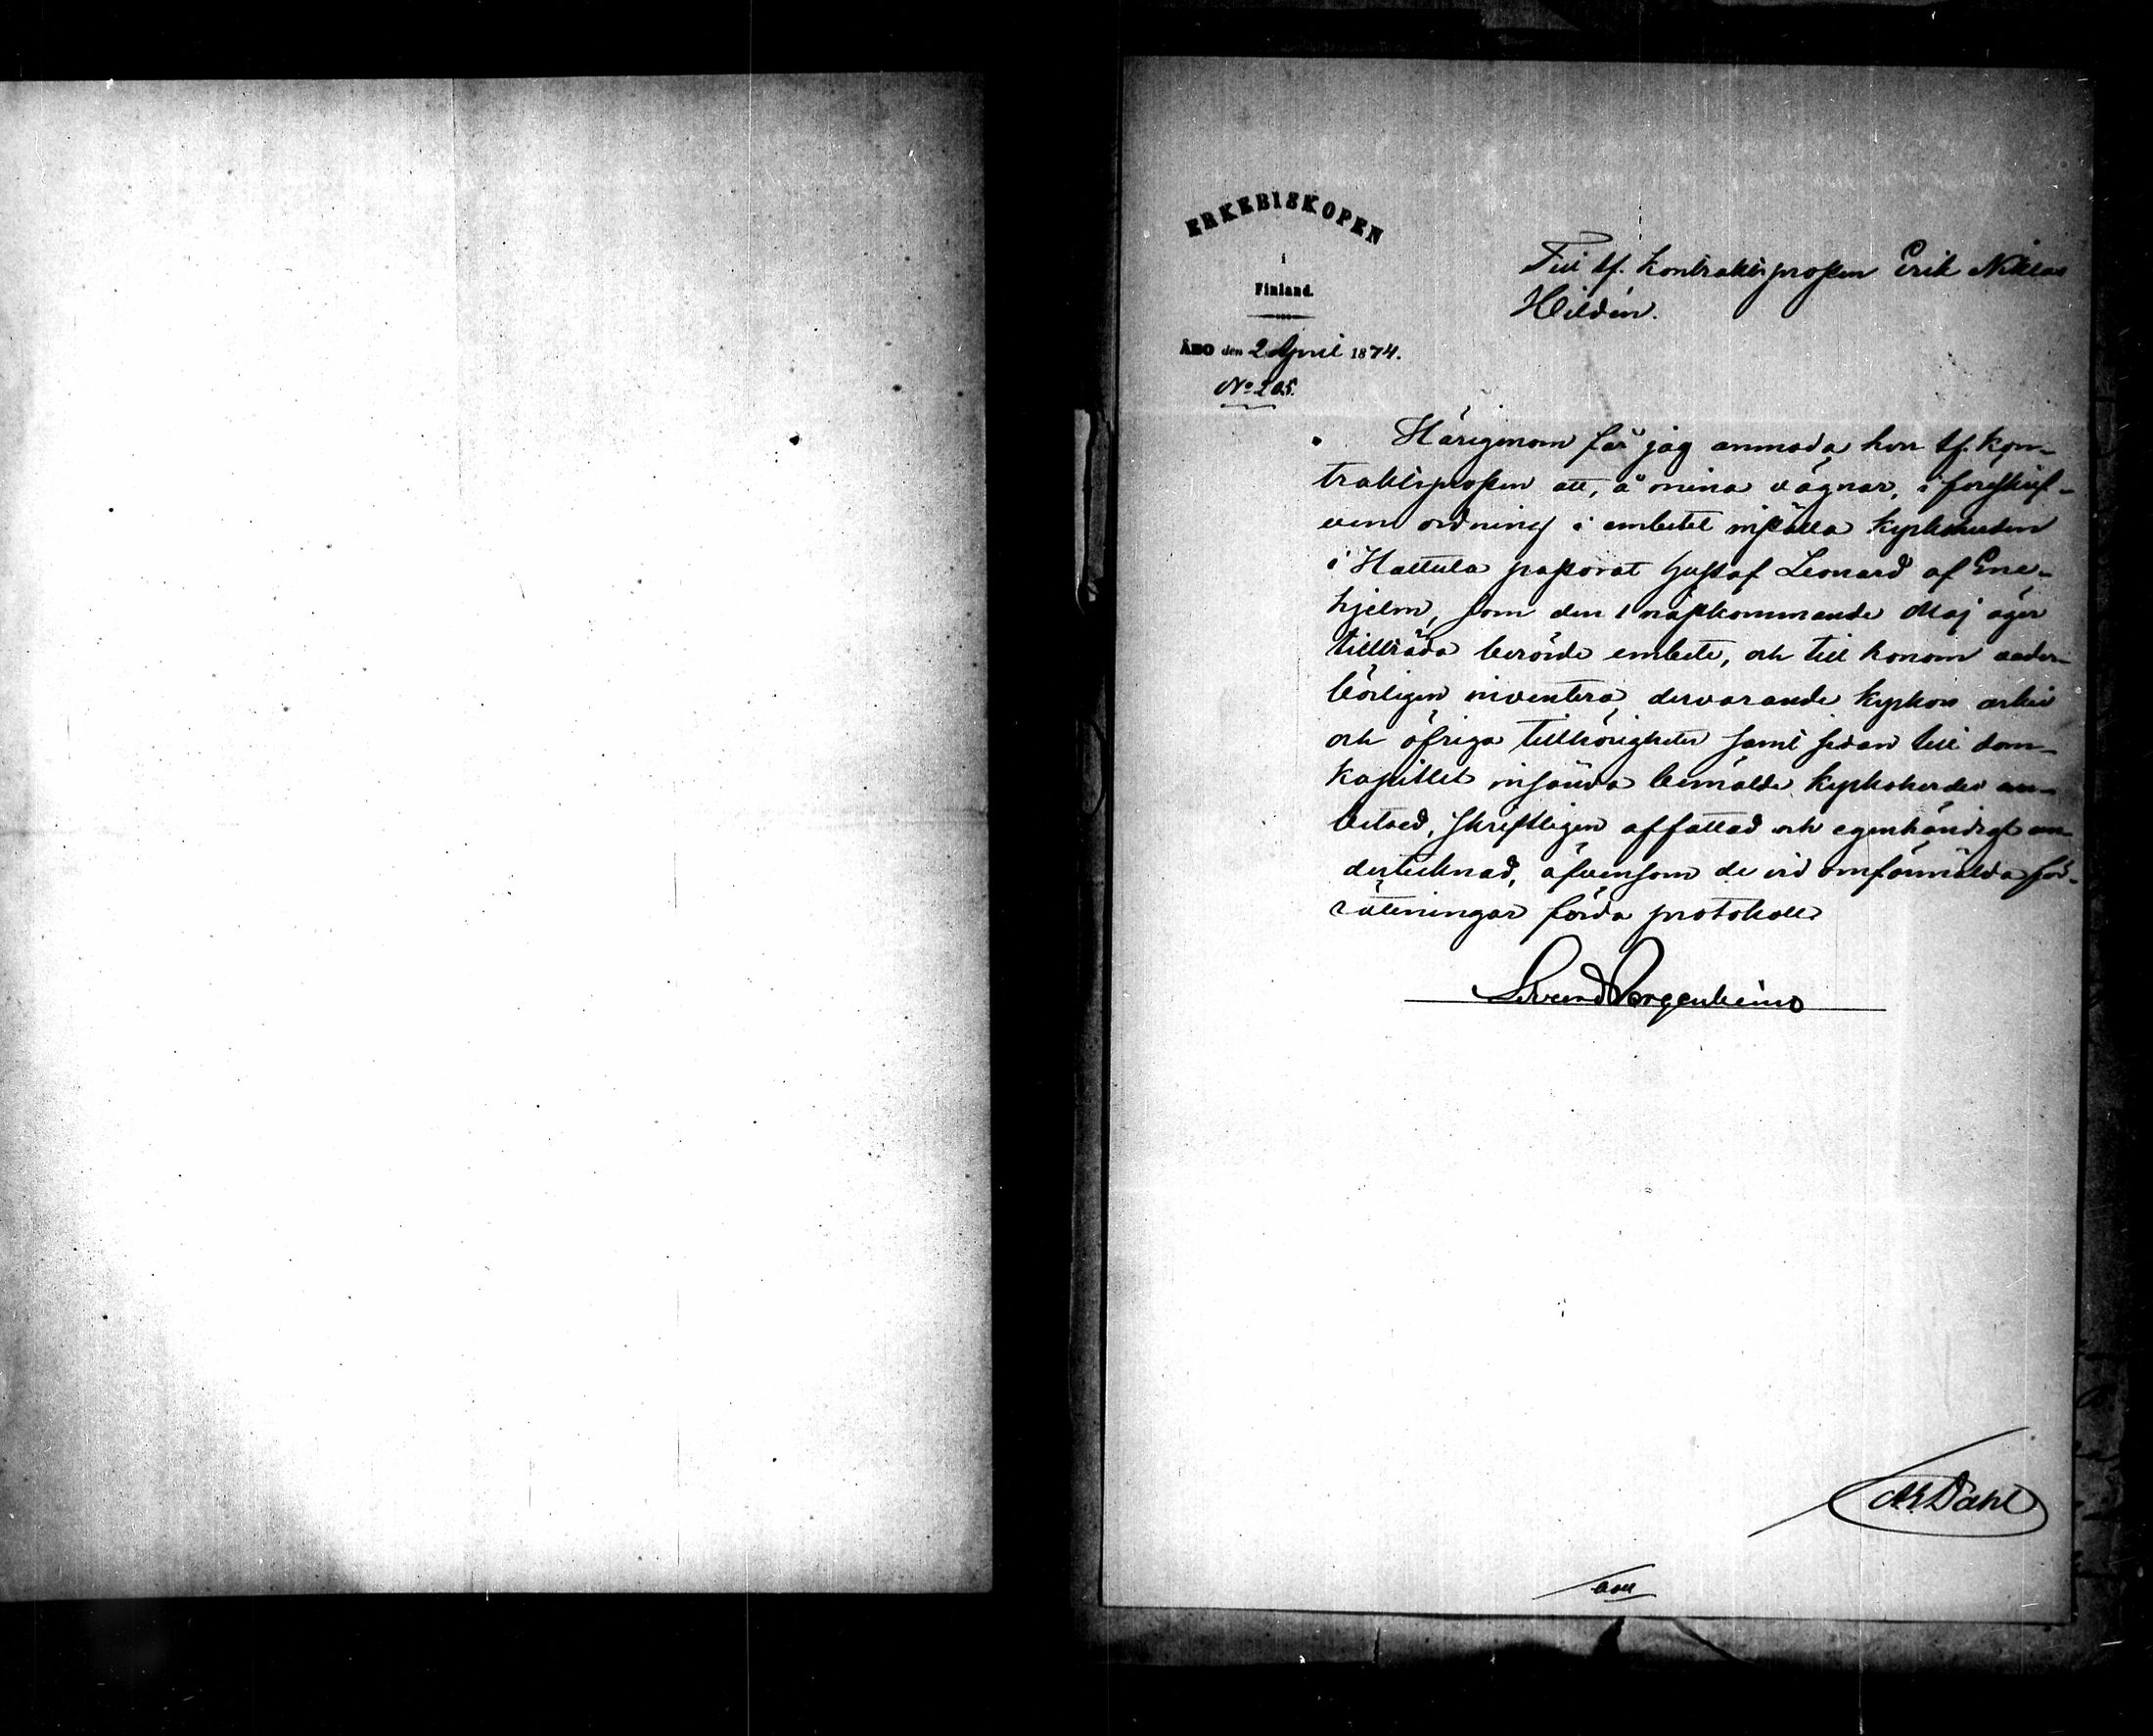 ERKEBISKOPEN
i
Finland.
ÅBO den 2 April 1874.
No 205.
Till tf. kontraktsprosten Erik Niklas
Hildén.
Härigenom får jag anmoda herr tf. kon-
traktsprosten att, å mina vägnar, i föreskrif-
ven ordning i embetet inställa kyrkoherden
i Hattula pastorat Gustaf Leonard af Ene-
hjelm, som den 1 nästkommande Maj äger
tillträda berörde embete, och till honom veder-
börligen inventera dervarande kyrkas arkiv
och öfriga tillhörigheter samt sedan till dom-
kapitlet insända bemälde kyrkoherdes em-
betsed, skriftligen affattad och egenhändigt un-
dertecknad, äfvensom de vid omförmälda för-
rättningar förda protokoll
Edvard Bergenheim
Dahl